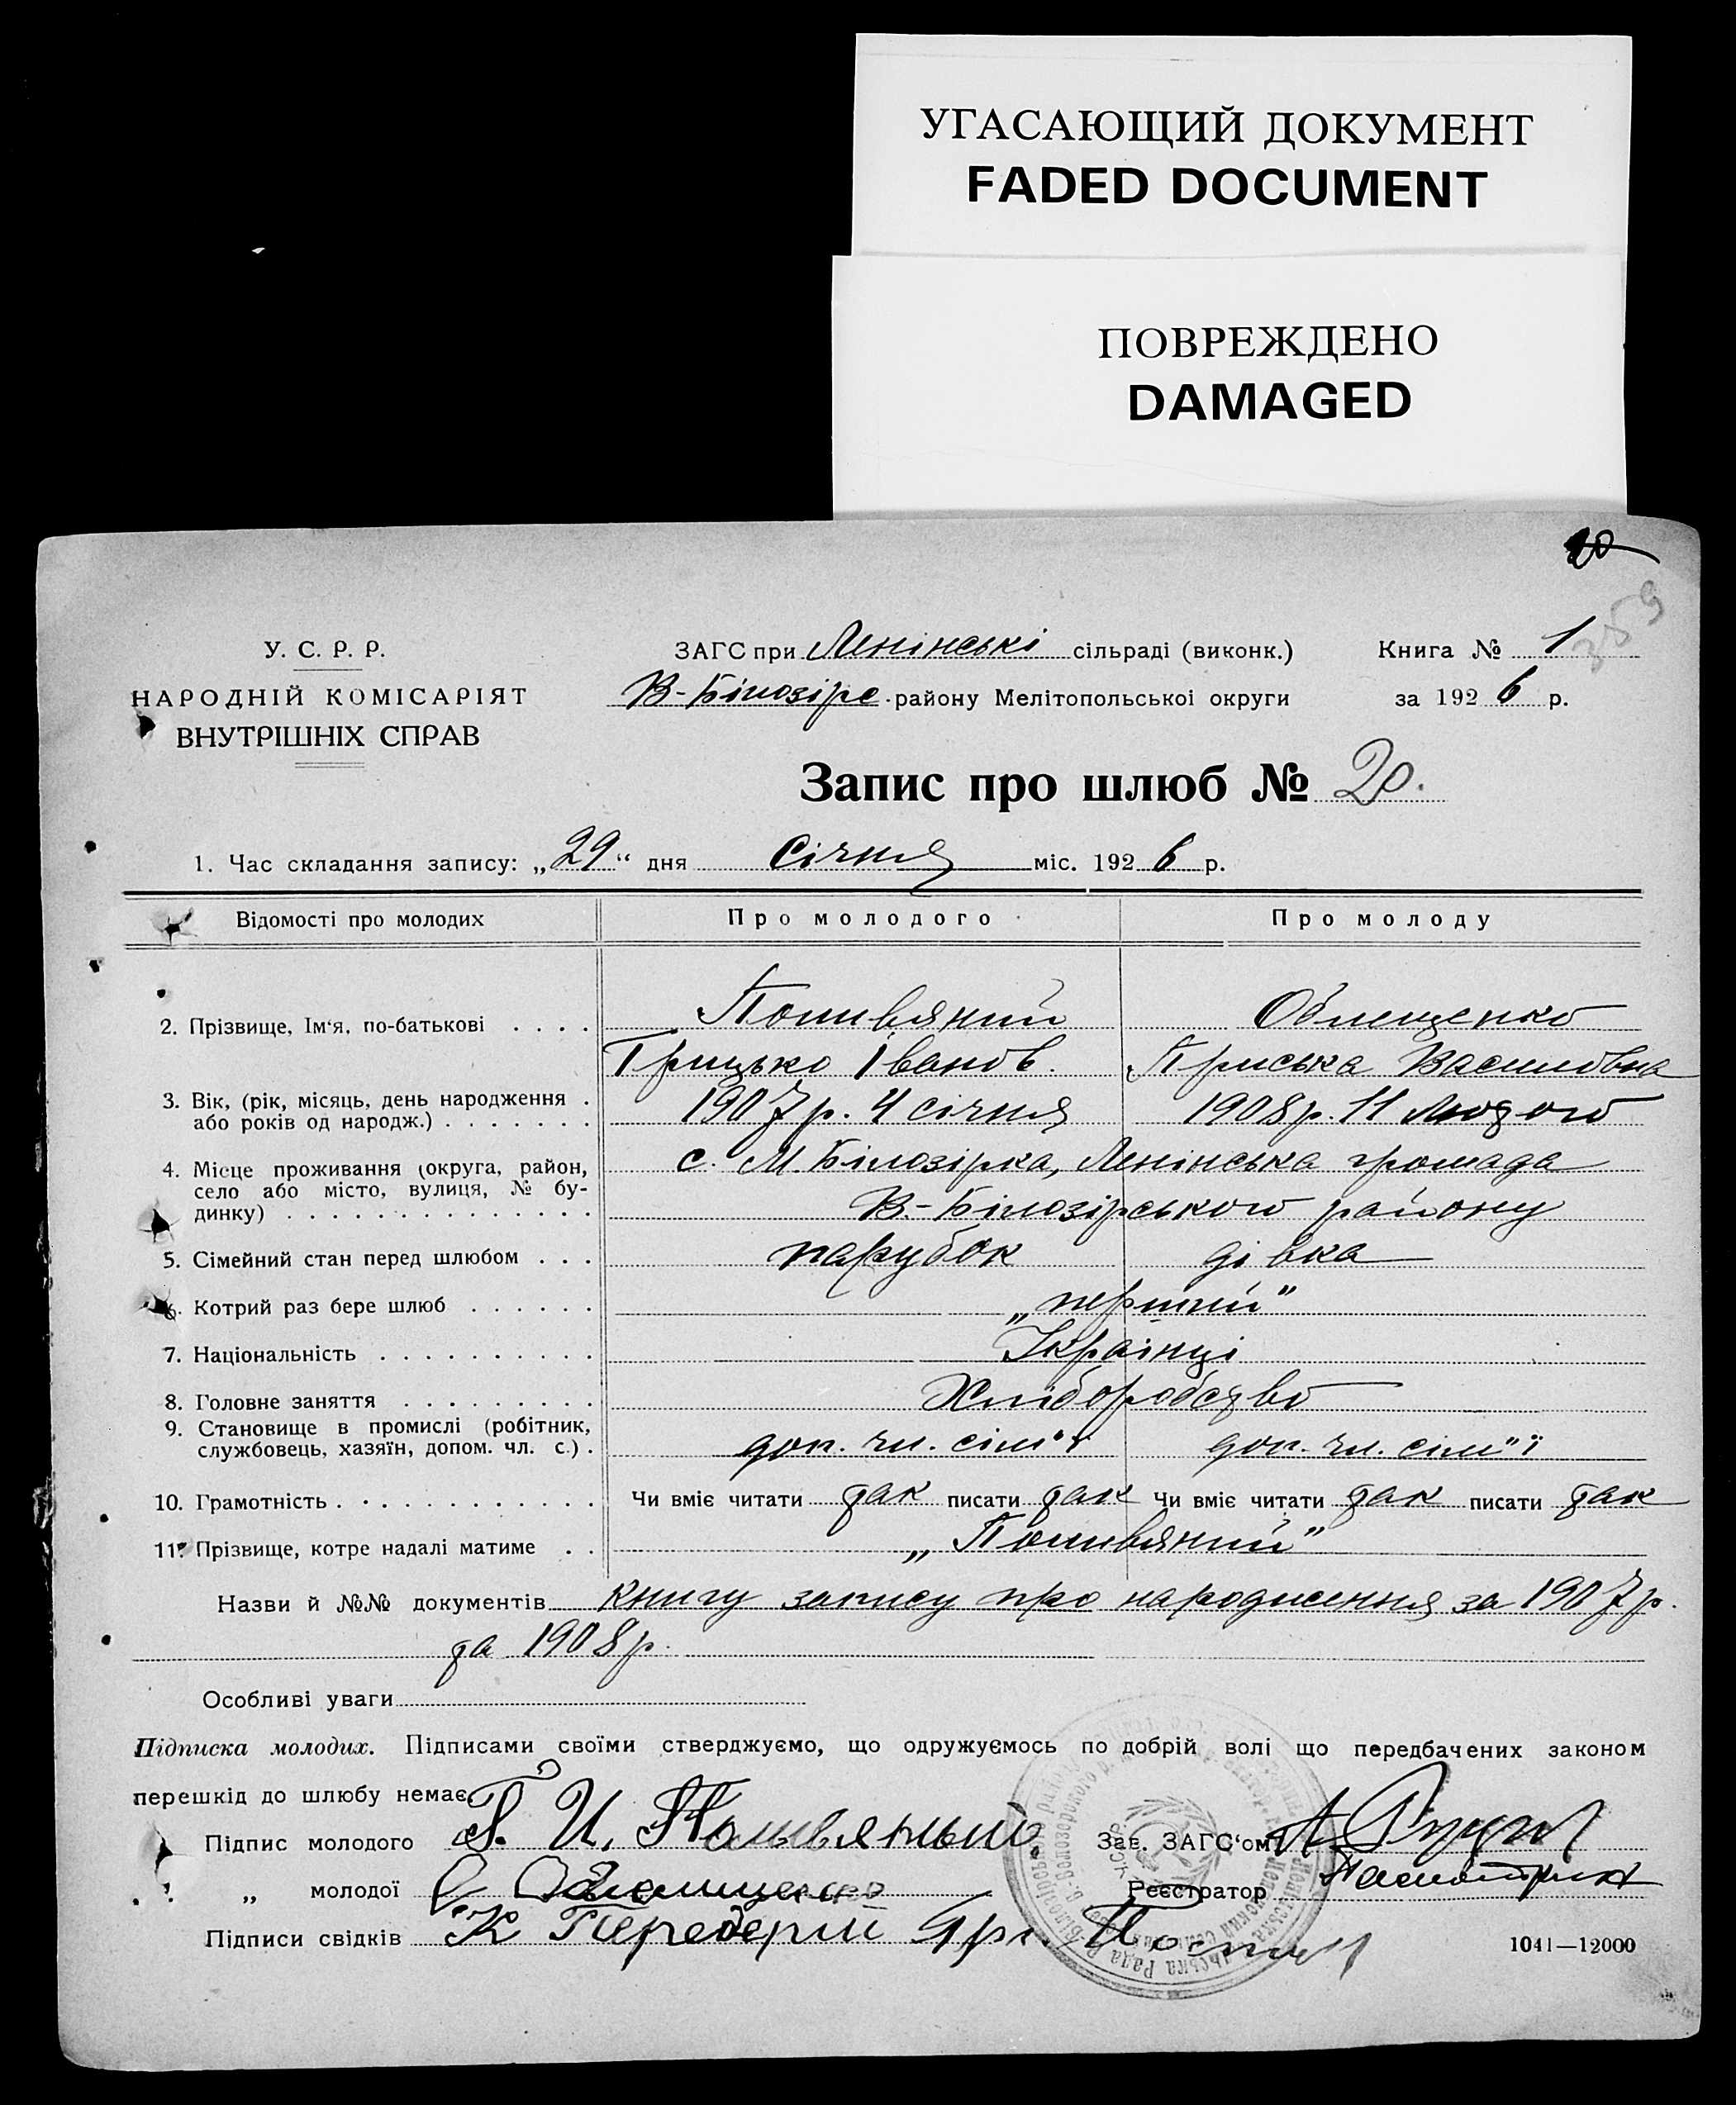 УГАСАЮЩИЙ ДОКУМЕНТ
FADED DOCUMENT
ПОВРЕЖДЕНО
DAMAGED
20
359
У. С. Р. Р.
НАРОДНІЙ КОМІСАРІЯТ
ВНУТРІШНІХ СПРАВ
ЗАГС при Ленінські сільраді (виконк.) Книга № 1
В-Білозірс району Мелітопольськоі округи за 1926 р.
Запис про шлюб № 20.
1. Час складання запису: „29“ дня Січня міс. 1926 р.
Відомості про молодих Про молодого Про молоду
2. Прізвище, Ім‘я, по-батькові . . . . Поливяний Облещенко
Грицько Іванов.Приська Василовна
3. Вік, (рік, місяць, день народження . 1907 р. 4 січня 1908 р. 11 Лютого
або років од народж.) . . . . . . .
4. Місце проживання (округа, район, с. М. Білозірка, Ленінська громада
село або місто, вулиця, № бу-
динку) . . . . . . . . . . . . . . В.-Білозірського району
5. Сімейний стан перед шлюбом . . . парубок дівка
6. Котрий раз бере шлюб . . . . . . „перший”
7. Національність . . . . . . . . . . Українці
8. Головне заняття . . . . . . . . . Хліборобство
9. Становище в промислі (робітник,
службовець, хазяїн, допом. чл. с.) . доп. чл. сім'ї доп. чл. сім"ї
10. Грамотність . . . . . . . . . . . . Чи вміє читати так писати так Чи вміє читати так писати так
11. Прізвище, котре надалі матиме . . „Поливяний”
Назви й №№ документів книгу запису про народження за 1907 р.
та 1908 р.
Особливі уваги
Підписка молодих. Підписами своїми стверджуємо, що одружуємось по добрій волі що передбачених законом
перешкід до шлюбу немає.
Підпис молодого Г. И. Поливяный Зав. ЗАГС‘ом
„ молодої Реєстратор
Підписи свідків К Передерий Гри.
1041—12000